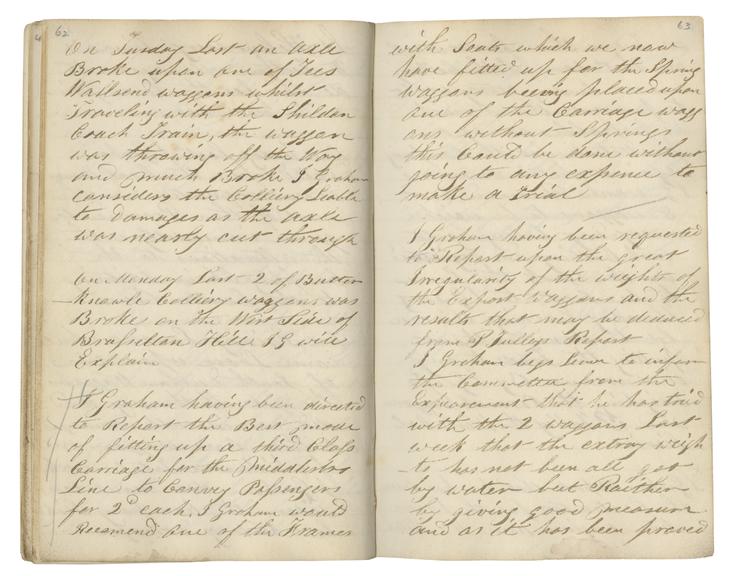 62
On Tusday Last an axle
Broke upon one of Tees
Wallsend waggons whilst
Traveling with the Shildon
Coach Train, the waggon
was throwing off the Way
and much Broke J Graham
considers the Colliery Liable
to damages as the axle
was nearly cut through
On Monday Last 2 of Butter
Knowle Colliery waggons was
Broke on the West Side of
Brafselton Hill J G will
Explain
J Graham having been directed
to Report the Best mode
of fitting up a third Class
Carriage for the Middlesbro
Line to Convey Pafsengers
for 2d each, J Graham would
Recomend one of the Frames
63
with Seats which we now
have fitted up for the Spring
waggons beeing placed upon
one of the Carriage wagg
ons without Springs
this Could be done without
going to any expence to
make a Trial
J Graham having been requested
to Report upon the great
Irregularity of the weights of
the Export Waggons and the
results that may be deduced
from R Report
J Graham begs Leave to inform
the Committee from the
Expearement that he has tried
with the 2 waggons Last
week that the extray weigh
-ts has not been all got
by water but Raither
by giving good measure
and as it has been proved